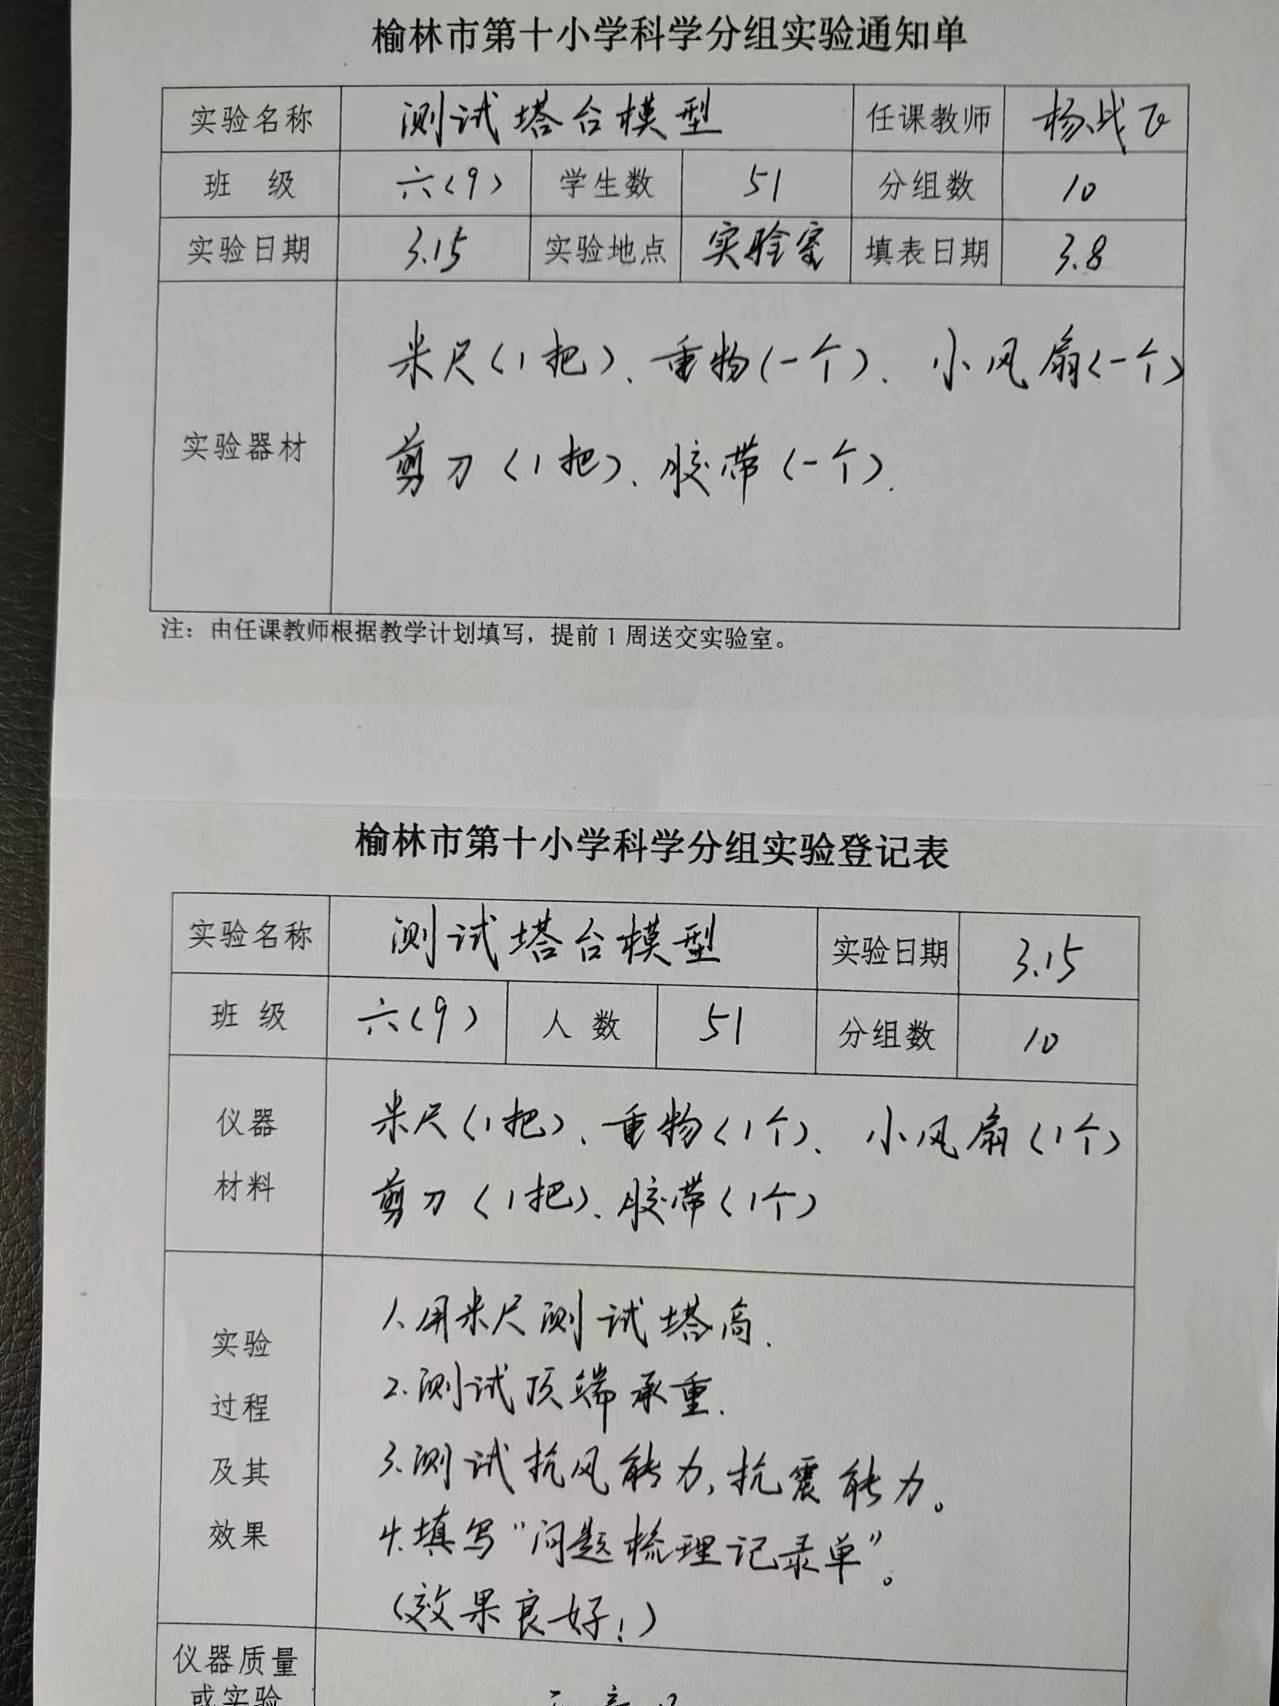 榆林市第十小学科学分组实验通知单
实验名称 测试塔台模型 任课教师 杨战飞
班 级 六(9) 学生数 51 分组数 10
实验日期 3.15 实验地点 实验室 填表日期 3.8
米尺(1把)、重物(一个)、小风扇(一个)
实验器材
剪刀(1把)、胶带(一个).
注：由任课教师根据教学计划填写，提前1周送交实验室。
榆林市第十小学科学分组实验登记表
实验名称 测试塔台模型 实验日期 3.15
班 级 六(9) 人 数 51 分组数 10
仪器 米尺(1把)、重物(1个)、小风扇(1个)
材料 剪刀(1把)、胶带(1个)
1.用米尺测试塔高.
实验
2.测试顶端承重.
过程
3.测试抗风能力,抗震能力。
及其
4.填写“问题梳理记录单”。
效果
(效果良好!)
仪器质量
或实验